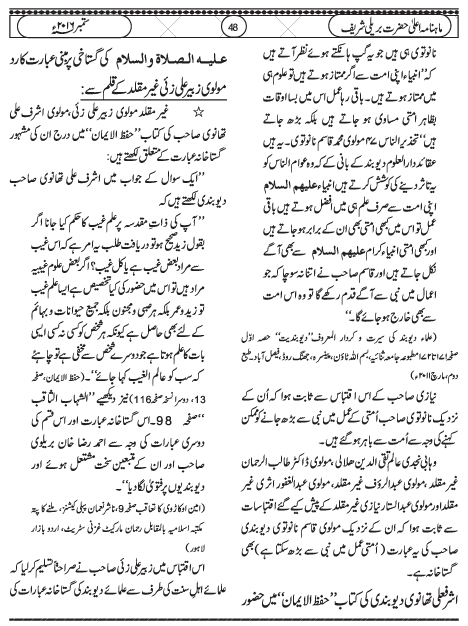 ماہنامہ اعلیٰ حضرت بریلی شریف
48
ستمبر ۲۰۱۶ء
نانوتوی ہی ہیں جو یہ گپ ہانکتے ہوئے نظر آتے ہیں
کہ’’انبیاء اپنی امت سے اگر ممتاز ہوتے ہیں تو علوم ہی
میں ممتاز ہوتے ہیں۔ باقی رہا عمل اس میں بسا اوقات
بظاہر امتی مساوی ہو جاتے ہیں بلکہ بڑھ جاتے
ہیں‘‘تحذیر الناس ۴۷ مولوی محمد قاسم نانوتوی۔ یہ ہیں
عقائد دار العلوم دیوبند کے بانی کے کہ وہ عوام الناس کو
یہ تاثر دینے کی کوشش کرتے ہیں انبیاء علیہم السلام
اپنی امت سے صرف علم ہی میں افضل ہوتے ہیں باقی
عمل تو اس میں کبھی امتی بھی ان کے برابر ہو جاتے ہیں
اور کبھی امتی انبیاء کرام علیہم السلام سے بھی آگے
نکل جاتے ہیں اور قاسم صاحب نے اتنا نہ سوچا کہ جو
اعمال میں نبی سے آگے قدم رکھے گا تو وہ اس امت
سے بھی خارج ہو جائے گا۔‘‘
(علماء دیوبند کی سیرت و کردار المعروف’’دیوبندیت‘‘ حصہ اوّل
صفحہ ۱۷۱، ۱۷۲ مطبوعہ جامعہ ثنائیہ، بسم اللہ ٹاؤن، پینسرہ، جھنگ روڈ، فیصل آباد۔ طبع
دوم، مارچ ۲۰۱۱ء)
نیازی صاحب کے اس اقتباس سے ثابت ہوا کہ اُن کے
نزدیک نانوتوی صاحب اُمتی کے عمل میں نبی سے بڑھ جانے کو ممکن
کہنے کی وجہ سے اُمت سے باہر ہو گئے ہیں۔
وہابی نجدی عالم تقی الدین ھلالی، مولوی ڈاکٹر طالب الرحمان
غیر مقلد، مولوی عبد الرؤف غیر مقلد، مولوی عبد الغفور اثری غیر
مقلد اور مولوی عبد الستار نیازی غیر مقلد کے پیش کیے گئے اقتباسات
سے ثابت ہوا کہ ان کے نزدیک مولوی قاسم نانوتوی دیوبندی
صاحب کی یہ عبارت (اُمتی عمل میں نبی سے بڑھ سکتا ہے) بھی
گستاخانہ ہے۔
اشر فعلی تھانوی دیوبندی کی کتاب ’’حفظ الایمان‘‘ میں حضور
علیہ الصلاۃ والسلام کی گستاخی پر مبنی عبارت کا رد
مولوی زبیر علی زئی غیر مقلد کے قلم سے:
☆ غیر مقلد مولوی زبیر علی زئی، مولوی اشرف علی
تھانوی صاحب کی کتاب ’’حفظ الایمان‘‘ میں درج ان کی مشہور
گستاخانہ عبارت کے متعلق لکھتے ہیں:
’’ایک سوال کے جواب میں اشرف علی تھانوی صاحب
دیوبندی لکھتے ہیں کہ
’’آپ کی ذات مقدسہ پر علم غیب کا حکم کیا جانا اگر
بقول زید صحیح ہو تو دریافت طلب یہ امر ہے کہ اس غیب
سے مراد بعض غیب ہے یا کل غیب؟ اگر بعض علوم غیبیہ
مراد ہیں تو اس میں حضور کی کیا تخصیص ہے ایسا علم غیب
تو زید و عمر بلکہ ہر صبی و مجنون بلکہ جمیع حیوانات و بہائم
کے لئے بھی حاصل ہے کیونکہ ہر شخص کو کسی نہ کسی ایسی
بات کا علم ہوتا ہے جو دوسرے شخص سے مخفی ہے تو چاہئے
کہ سب کو عالم الغیب کہا جائے‘‘۔ (حفظ الایمان، صفحہ
13، دوسرا نسخہ صفحہ 116) نیز دیکھیے ’’الشہاب الثاقب
’’صفحہ 98۔ اس گستاخانہ عبارت اور اس قسم کی
دوسری عبارات کی وجہ سے احمد رضا خان بریلوی
صاحب اور ان کے متبعین سخت مشتعل ہوئے اور
دیوبندیوں پر فتویٰ لگا دیا‘‘۔
(امین اوکاڑوی کا تعاقب صفحہ 9، ناشر نعمان پبلی کیشنز، ملنے کا پتہ
مکتبہ اسلامیہ بالمقابل رحمان مارکیٹ غزنی سٹریٹ، اردو بازار
لاہور)
اس اقتباس میں زبیر علی زئی صاحب نے صراحتاً تسلیم کر لیا کہ
علمائے اہل سنت کی طرف سے علمائے دیوبند کی گستاخانہ عبارات کی